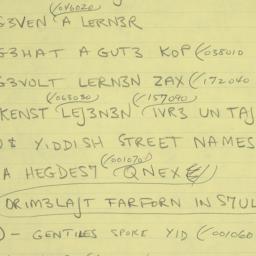 (046020)
G3VEN A LERN3R
G3HAT A GUT3 KOP (038010
G3VOLT LERN3N ZAX (172040
(063030) (157090)
KENST LEJ3N3N IVR3 UN TAJ
YIDDISH STREET NAMES
(001070)
A HEGDES7 QNEX
ORIM3LAJT FARFORN IN S7UL
- GENTILES SPOKE YID (001060